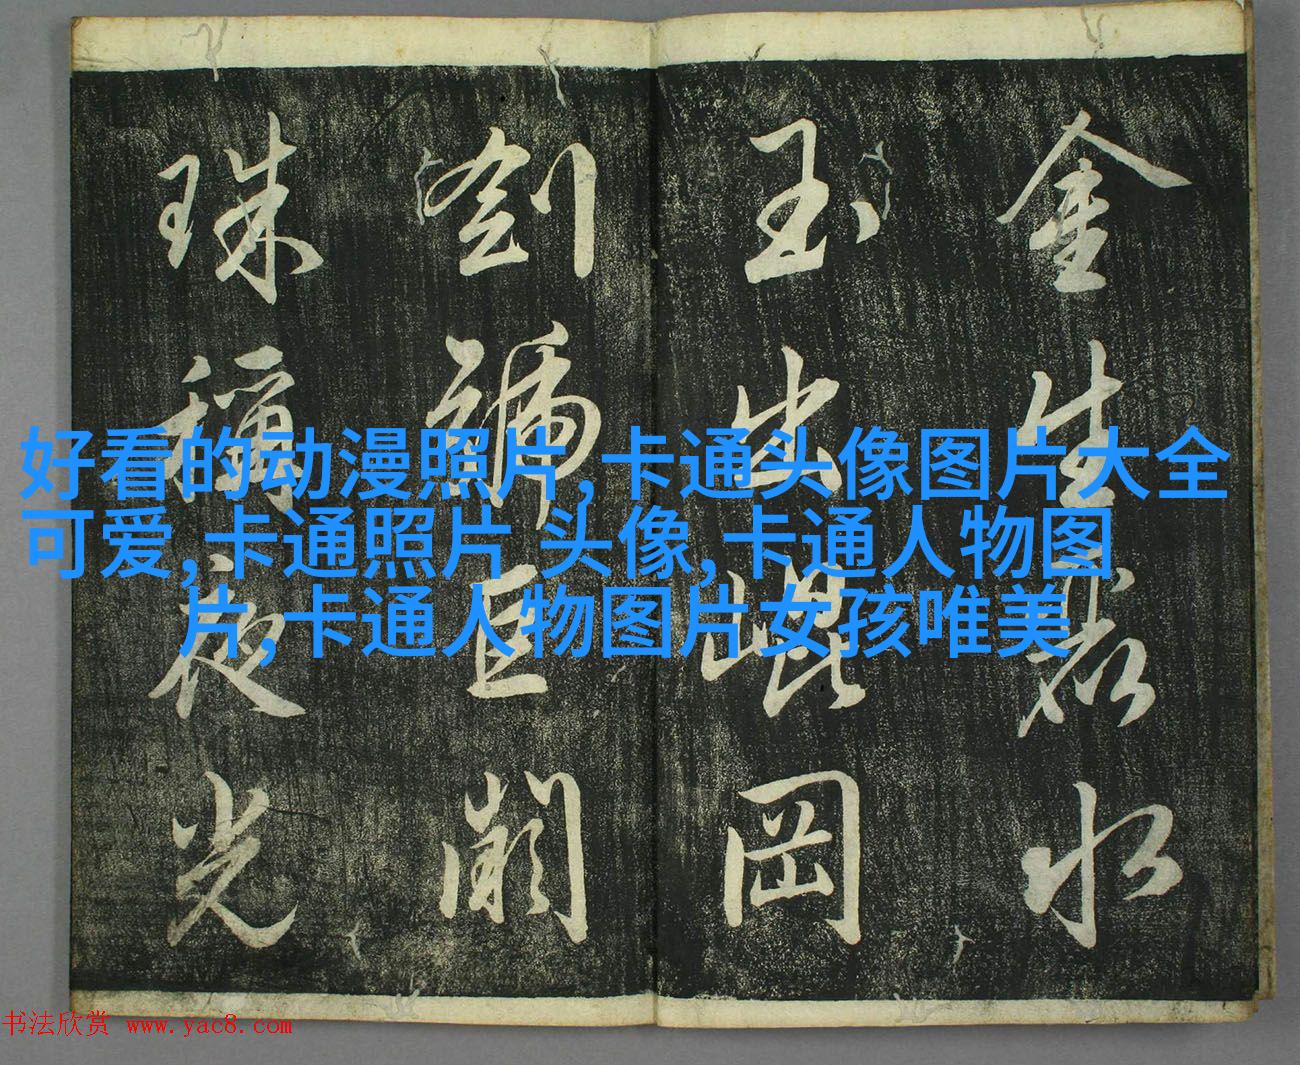 金生麗水
玉出崐岡
劍號巨闕
珠稱夜光
好看的动漫照片,卡通头像图片大全
可爱,卡通照片 头像,卡通人物图
片,卡通人物图片女孩唯美
书法欣赏 www.yac8.com